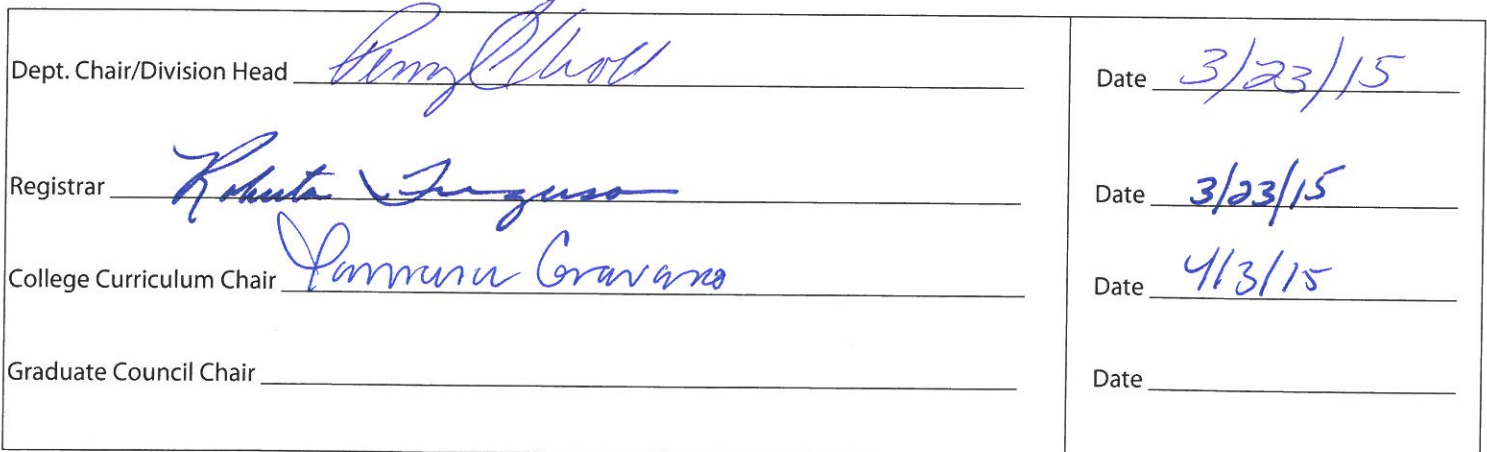 Dept. Chair/Division Head Date 3/23/15
Registrar Roberta Ferguson Date 3/23/15
College Curriculum Chair Date 4/3/15
Graduate Council Chair Date